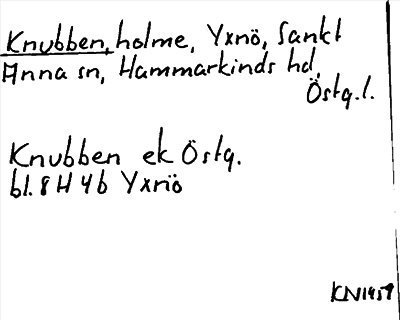 Knubben, holme, Yxnö, Sankt
Anna sn, Hammarkinds hd,
Östg.l.
Knubben ek Östg.
bl. 8 H 4b Yxnö
KN1959